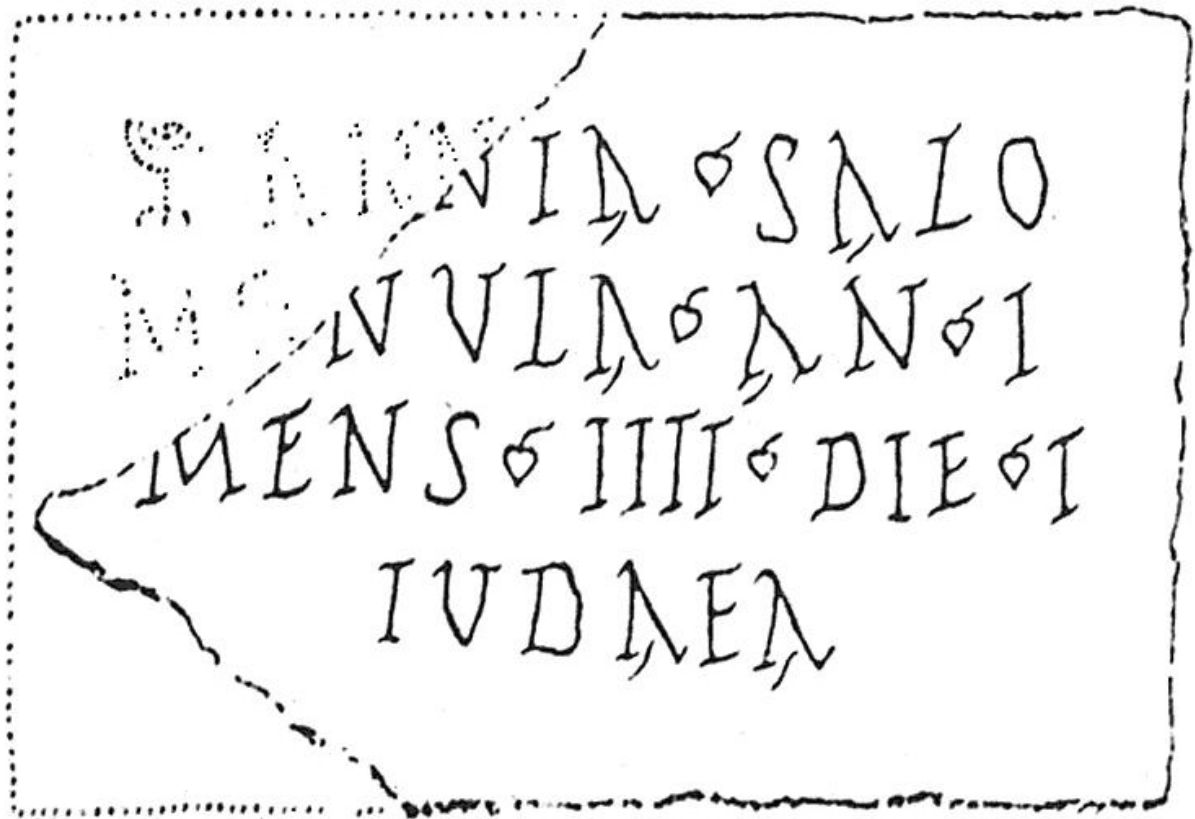 ANNIA ❦ SALO
MONULA ❦ AN ❦ I
MENS ❦ IIII ❦ DIE ❦ I
IUDAEA